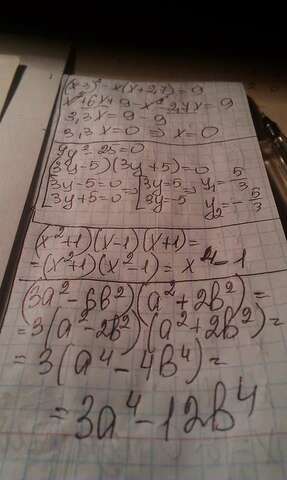 (x+3)² - x(x+2,7) = 9
x²+6x+9-x²-2,7x = 9
3,3x = 9 - 9
3,3x = 0 ⇒ x = 0
9y² - 25 = 0
(3y-5)(3y+5) = 0
[3y-5=0 ⇒ [3y=5 ⇒ y₁ = 5/3
[3y+5=0 [3y=-5 y₂ = -5/3
(x²+1)(x-1)(x+1) =
= (x²+1)(x²-1) = x⁴-1
(3a²-6b²)(a²+2b²) =
= 3(a²-2b²)(a²+2b²) =
= 3(a⁴-4b⁴) =
= 3a⁴-12b⁴